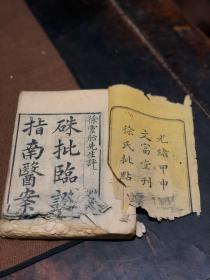 徐靈胎先生評
硃批臨證
指南醫案
光緒甲申
文富堂刊
徐氏批點